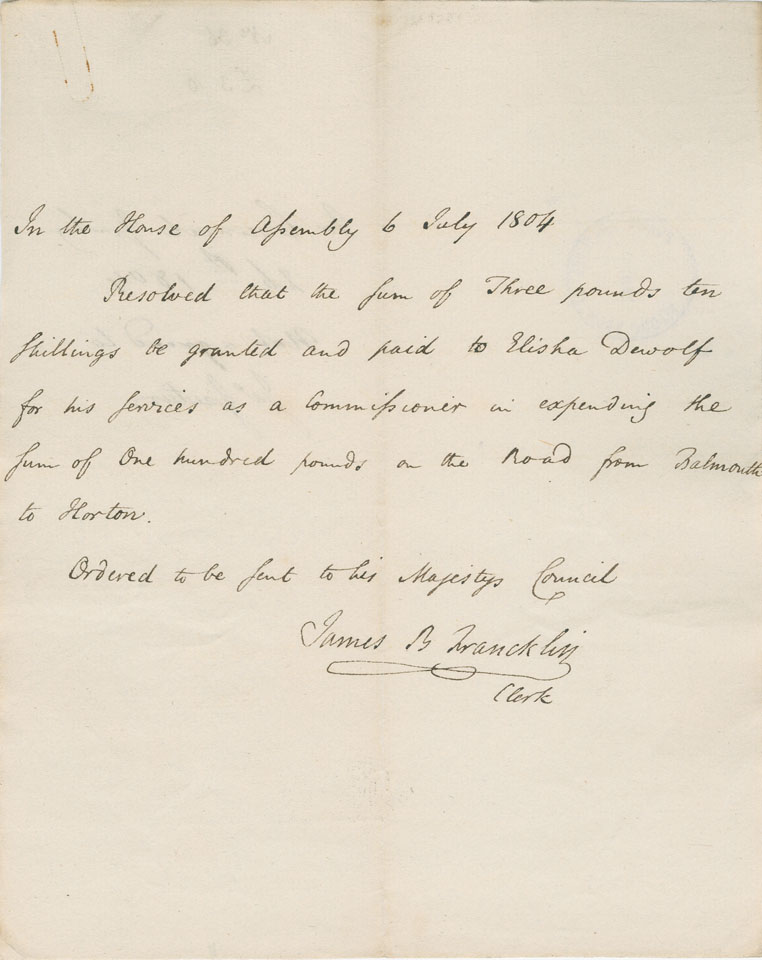 In the House of Assembly 6 July 1804
Resolved that the sum of Three pounds ten
shillings be granted and paid to Elisha Dewolf
for his services as a Commissioner in expending the
sum of One hundred pounds on the Road from Balmouth
to Horton.
Ordered to be sent to his Majestys Council
James B Francklin
Clerk